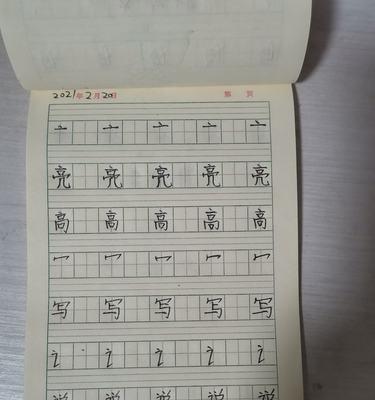 2021年2月20日 第 页
亠 亠 亠 亠 亠
亮 亮 亮 亮 亮
高 高 高 高 高
冖 冖 冖 冖 冖
写 写 写 写 写
讠 讠 讠 讠 讠
说 说 说 说 说